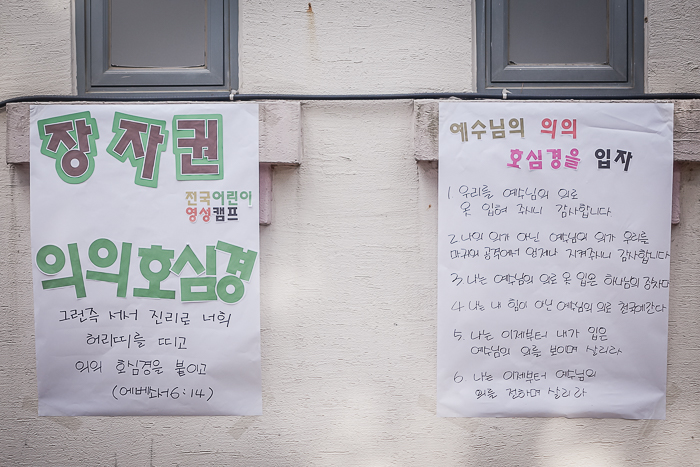 장자권
전국어린이
영성캠프
의의호심경
그런즉 서서 진리로 너희
허리띠를 띠고
의의 호심경을 붙이고
(에베소서6:14)
예수님의 의의
호심경을 입자
1. 우리를 예수님의 의로
옷 입혀 주시니 감사합니다
2. 나의 의가 아닌 예수님의 의가 우리를
마귀의 공격에서 언제나 지켜주시니 감사합니다
3. 나는 예수님의 의로 옷 입은 하나님의 장자다
4. 나는 내 힘이 아닌 예수님의 의로 천국에간다
5. 나는 이제부터 내가 입은
예수님의 의를 보이며 살리라
6. 나는 이제부터 예수님의
의를 전하며 살리라